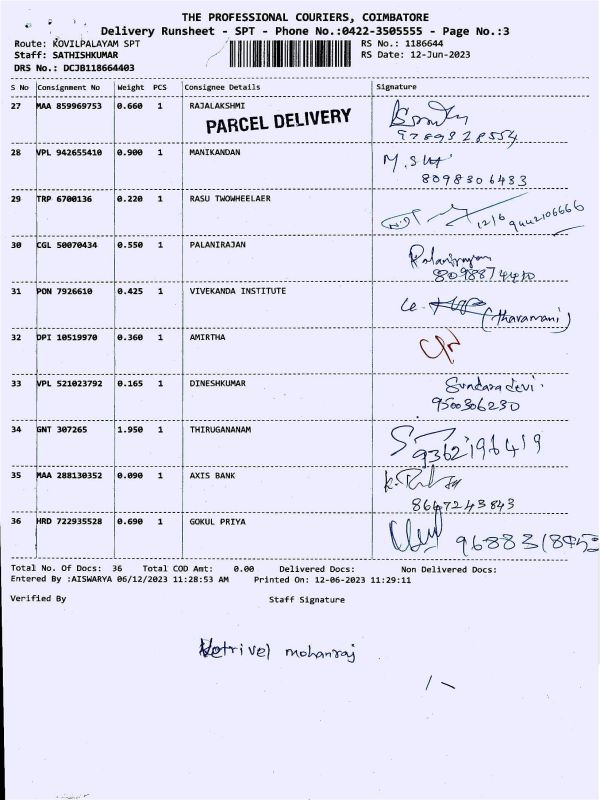 THE PROFESSIONAL COURIERS, COIMBATORE
Delivery Runsheet - SPT - Phone No.:0422-3505555 - Page No.:3
Route: KOVILPALAYAM SPT RS No.: 1186644
Staff: SATHISHKUMAR RS Date: 12-Jun-2023
DRS No.: DCJB118664403
S No Consignment No Weight PCS Consignee Details Signature
27 MAA 859969753 0.660 1 RAJALAKSHMI
PARCEL DELIVERY
9789328554
28 VPL 942655410 0.900 1 MANIKANDAN M.S
8098306433
29 TRP 6700136 0.220 1 RASU TWOWHEELAER 12/6 9442106666
30 CGL 50070434 0.550 1 PALANIRAJAN Palanirajan
31 PON 7926610 0.425 1 VIVEKANDA INSTITUTE
(tharamani)
32 DPI 10519970 0.360 1 AMIRTHA
33 VPL 521023792 0.165 1 DINESHKUMAR Sundara devi.
9500306230
34 GNT 307265 1.950 1 THIRUGANANAM
9362196419
35 MAA 288130352 0.090 1 AXIS BANK
8667243843
36 HRD 722935528 0.690 1 GOKUL PRIYA
Total No. Of Docs: 36 Total COD Amt: 0.00 Delivered Docs: Non Delivered Docs:
Entered By :AISWARYA 06/12/2023 11:28:53 AM Printed On: 12-06-2023 11:29:11
Verified By Staff Signature
Vetrivel mohanraj